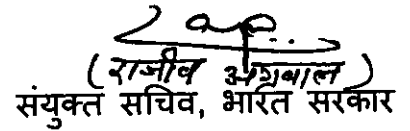 (राजीव अग्रवाल)
संयुक्त सचिव, भारत सरकार